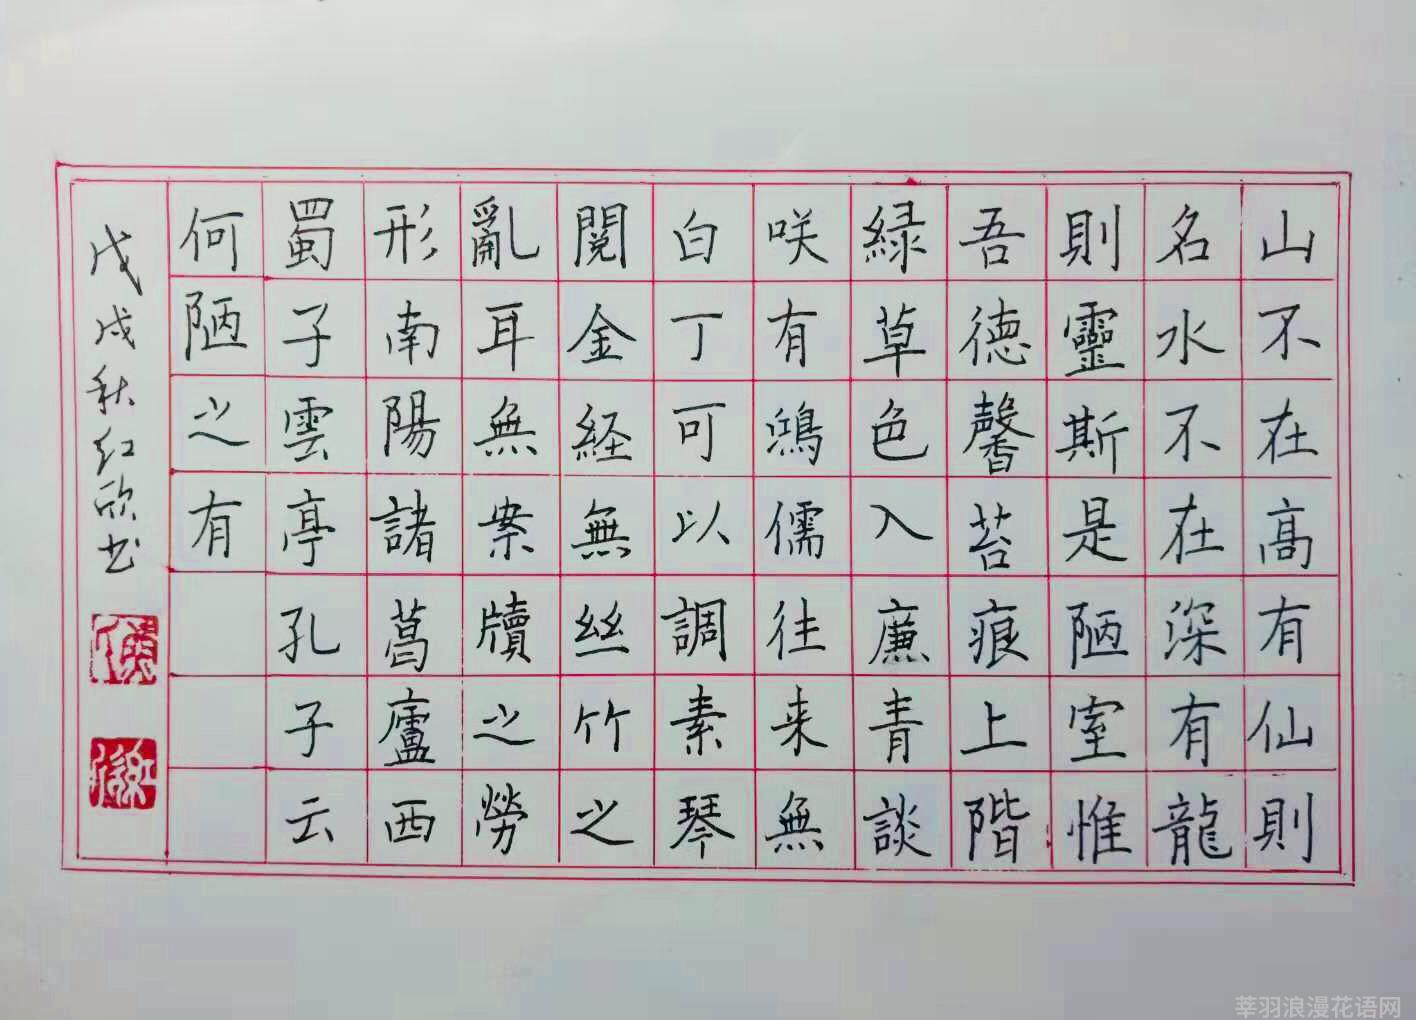 山不在高有仙則
名水不在深有龍
則靈斯是陋室惟
吾德馨苔痕上階
緑草色入廉青談
咲有鴻儒往来無
白丁可以調素琴
閲金経無絲竹之
亂耳無案牘之勞
形南陽諸葛廬西
蜀子雲亭孔子云
何陋之有
戊戌秋红欣书
莘羽浪漫花语网